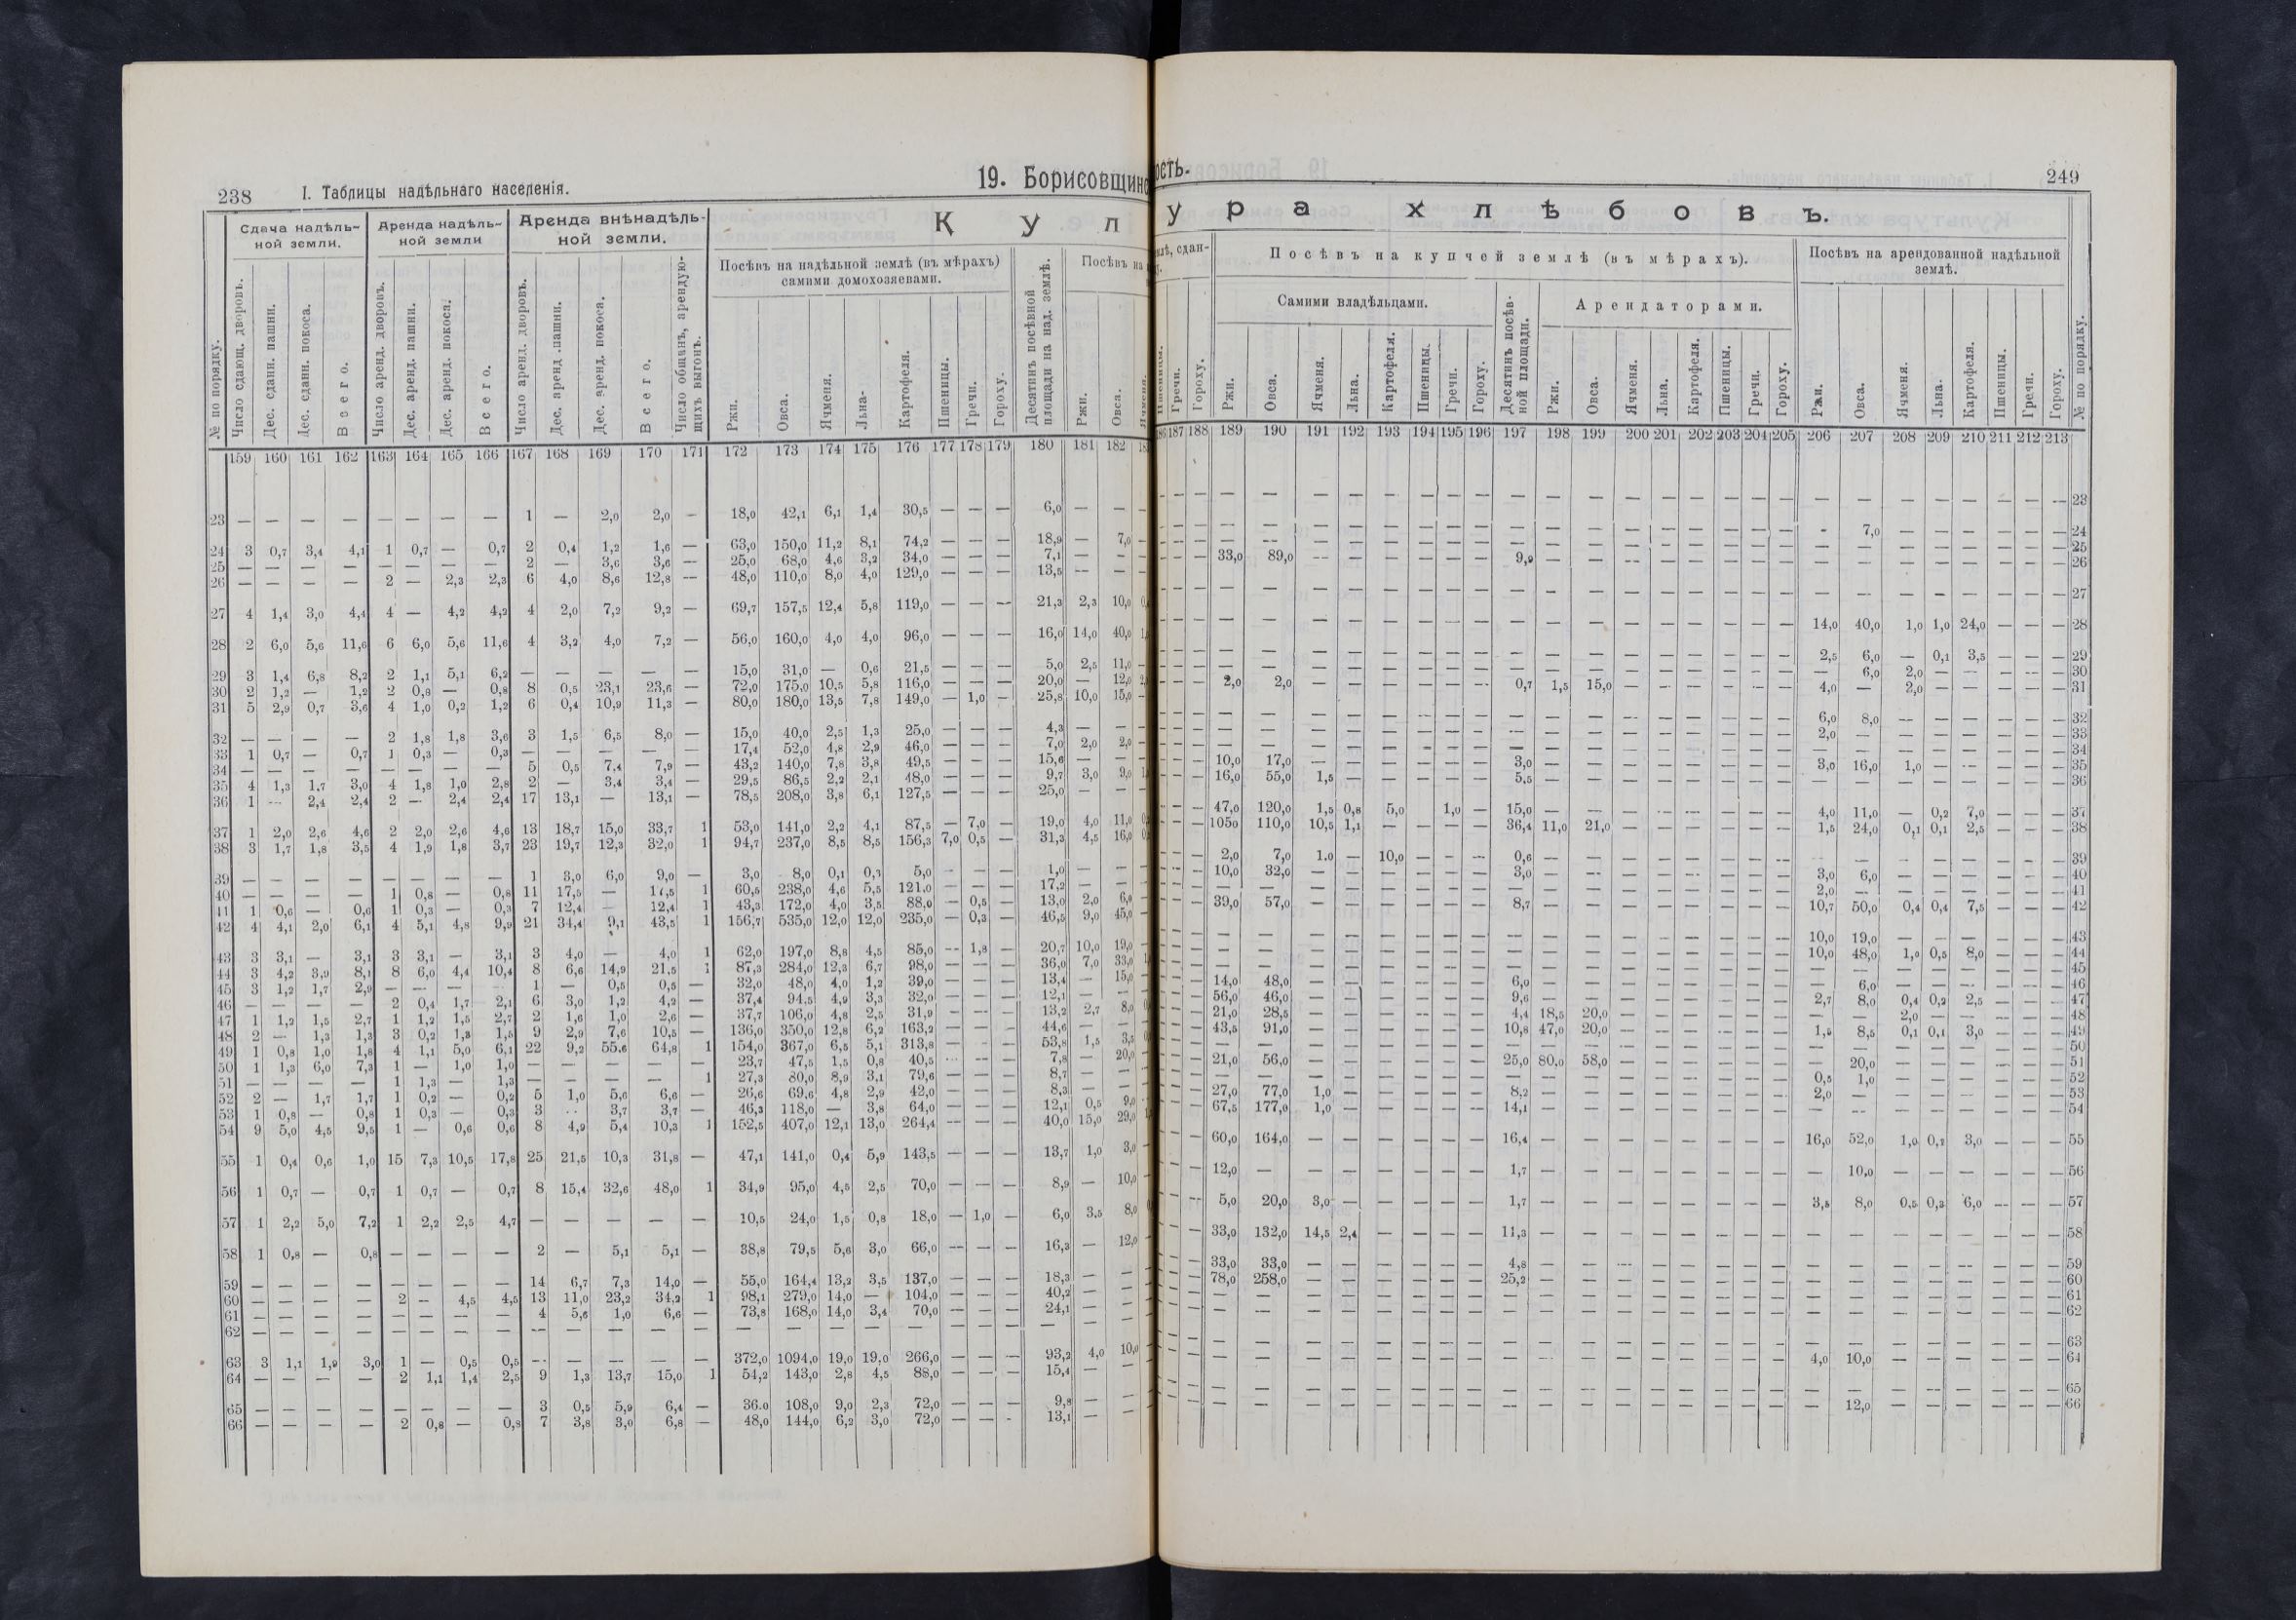 238 I. Таблицы надѣльнаго населенія. 19. Борисовщинс
ость. 249
Сдача надѣль-
ной земли.
Аренда надѣль-
ной земли
Аренда внѣнадѣль-
ной земли.
К у л
у р а х л ѣ б о в ъ.
Посѣвъ на надѣльной землѣ (въ мѣрахъ)
самими домохозяевами.
Посѣвъ на
Посѣвъ на купчей землѣ (въ мѣрахъ).
Посѣвъ на арендованной надѣльной
землѣ.
Самими владѣльцами.
Арендаторами.
№ по порядку.
Число сдающ. дворовъ.
Дес. сданн. пашни.
Дес. сданн. покоса.
Всего.
Число аренд. дворовъ.
Дес. аренд. пашни.
Дес. аренд. покоса.
Всего.
Число аренд. дворовъ.
Дес. аренд. пашни.
Дес. аренд. покоса.
Всего.
Число общинъ, арендую-
щихъ выгонъ.
Ржи.
Овса.
Ячменя.
Льна-
Картофеля.
Пшеницы.
Гречи.
Гороху.
Десятинъ посѣвной
площади на над. землѣ.
Ржи.
Овса.
Гречи.
Гороху.
Ржи.
Овса.
Ячменя.
Льна.
Картофеля.
Пшеницы.
Гречи.
Гороху.
Десятинъ посѣв-
ной площади.
Ржи.
Овса.
Ячменя.
Льна.
Картофеля.
Пшеницы.
Гречи.
Гороху.
Ржи.
Овса.
Ячменя.
Льна.
Картофеля.
Пшеницы.
Гречи.
Гороху.
№ по порядку.
159 160 161 162 163 164 165 166 167 168 169 170 171 172 173 174 175 176 177 178 179 180 181 182
187 188 189 190 191 192 193 194 195 196 197 198 199 200 201 202 203 204 205 206 207 208 209 210 211 212 213
23 — — — — — — — — 1 — 2,0 2,0 — 18,0 42,1 6,1 1,4 30,5 — — — 6,0 — —
24 3 0,7 3,4 4,1 1 0,7 — 0,7 2 0,4 1,2 1,6 — 63,0 150,0 11,2 8,1 74,2 — — — 18,9 — 7,0
25 — — — — — — — — 2 — 3,6 3,6 — 25,0 68,0 4,6 3,2 34,0 — — — 7,1 — —
26 — — — — 2 — 2,3 2,3 6 4,0 8,6 12,8 — 48,0 110,0 8,0 4,0 129,0 — — — 13,5 — —
27 4 1,4 3,0 4,4 4 — 4,2 4,2 4 2,0 7,2 9,2 — 69,7 157,5 12,4 5,8 119,0 — — — 21,3 2,3 10,0
28 2 6,0 5,6 11,6 6 6,0 5,6 11,6 4 3,2 4,0 7,2 — 56,0 160,0 4,0 4,0 96,0 — — — 16,0 14,0 40,0
29 3 1,4 6,8 8,2 2 1,1 5,1 6,2 — — — — — 15,0 31,0 — 0,6 21,5 — — — 5,0 2,5 11,0
30 2 1,2 — 1,2 2 0,8 — 0,8 8 0,5 23,1 23,6 — 72,0 175,0 10,5 5,8 116,0 — — — 20,0 — 12,0
31 5 2,9 0,7 3,6 4 1,0 0,2 1,2 6 0,4 10,9 11,3 — 80,0 180,0 13,5 7,8 149,0 — 1,0 — 25,8 10,0 15,0
32 — — — — 2 1,8 1,8 3,6 3 1,5 6,5 8,0 — 15,0 40,0 2,5 1,3 25,0 — — — 4,3 — —
33 1 0,7 — 0,7 1 0,3 — 0,3 — — — — — 17,4 52,0 4,8 2,9 46,0 — — — 7,0 2,0 2,0
34 — — — — — — — — 5 0,5 7,4 7,9 — 43,2 140,0 7,8 3,8 49,5 — — — 15,6 — —
35 4 1,3 1,7 3,0 4 1,8 1,0 2,8 2 — 3,4 3,4 — 29,5 86,5 2,2 2,1 48,0 — — — 9,7 3,0 9,0
36 1 — 2,4 2,4 2 — 2,4 2,4 17 13,1 — 13,1 — 78,5 208,0 3,8 6,1 127,5 — — — 25,0 — —
37 1 2,0 2,6 4,6 2 2,0 2,6 4,6 13 18,7 15,0 33,7 1 53,0 141,0 2,2 4,1 87,5 — 7,0 — 19,0 4,0 11,0
38 3 1,7 1,8 3,5 4 1,9 1,8 3,7 23 19,7 12,3 32,0 1 94,7 237,0 8,5 8,5 156,3 7,0 0,5 — 31,3 4,5 16,0
39 — — — — — — — — 1 3,0 6,0 9,0 — 3,0 8,0 0,1 0,1 5,0 — — — 1,0 — —
40 — — — — 1 0,8 — 0,8 11 17,5 — 17,5 1 60,5 238,0 4,6 5,5 121,0 — — — 17,2 — —
41 1 0,6 — 0,6 1 0,3 — 0,3 7 12,4 — 12,4 1 43,3 172,0 4,0 3,5 88,0 — 0,5 — 13,0 2,0 6,0
42 4 4,1 2,0 6,1 4 5,1 4,8 9,9 21 34,4 9,1 43,5 1 156,7 535,0 12,0 12,0 235,0 — 0,3 — 46,5 9,0 45,0
43 3 3,1 — 3,1 3 3,1 — 3,1 3 4,0 — 4,0 1 62,0 197,0 8,8 4,5 85,0 — 1,8 — 20,7 10,0 19,0
44 3 4,2 3,9 8,1 8 6,0 4,4 10,4 8 6,6 14,9 21,5 1 87,3 284,0 12,3 6,7 98,0 — — — 36,0 7,0 33,0
45 3 1,2 1,7 2,9 — — — — 1 — 0,5 0,5 — 32,0 48,0 4,0 1,2 39,0 — — — 13,4 — 15,0
46 — — — — 2 0,4 1,7 2,1 6 3,0 1,2 4,2 — 37,4 94,5 4,9 3,3 32,0 — — — 12,1 — —
47 1 1,2 1,5 2,7 1 1,2 1,5 2,7 2 1,6 1,0 2,6 — 37,7 106,0 4,8 2,5 31,9 — — — 13,2 2,7 8,0
48 2 — 1,3 1,3 3 0,2 1,3 1,5 9 2,9 7,6 10,5 — 136,0 350,0 12,8 6,2 163,2 — — — 44,6 — —
49 1 0,8 1,0 1,8 4 1,1 5,0 6,1 22 9,2 55,6 64,8 1 154,0 367,0 6,5 5,1 313,8 — — — 53,8 1,5 3,5
50 1 1,3 6,0 7,3 1 — 1,0 1,0 — — — — — 23,7 47,5 1,5 0,8 40,5 — — — 7,8 — 20,0
51 — — — — 1 1,3 — 1,3 — — — — 1 27,3 80,0 8,9 3,1 79,6 — — — 8,7 — —
52 2 — 1,7 1,7 1 0,2 — 0,2 5 1,0 5,6 6,6 — 26,6 69,6 4,8 2,9 42,0 — — — 8,3 — —
53 1 0,8 — 0,8 1 0,3 — 0,3 3 — 3,7 3,7 — 46,3 118,0 — 3,8 64,0 — — — 12,1 0,5 9,0
54 9 5,0 4,5 9,5 1 — 0,6 0,6 8 4,9 5,4 10,3 1 152,5 407,0 12,1 13,0 264,4 — — — 40,0 15,0 29,0
55 1 0,4 0,6 1,0 15 7,3 10,5 17,8 25 21,5 10,3 31,8 — 47,1 141,0 0,4 5,9 143,5 — — — 13,7 1,0 3,0
56 1 0,7 — 0,7 1 0,7 — 0,7 8 15,4 32,6 48,0 1 34,9 95,0 4,5 2,5 70,0 — — — 8,9 — 10,0
57 1 2,2 5,0 7,2 1 2,2 2,5 4,7 — — — — — 10,5 24,0 1,5 0,8 18,0 — 1,0 — 6,0 3,5 8,0
58 1 0,8 — 0,8 — — — — 2 — 5,1 5,1 — 38,8 79,5 5,6 3,0 66,0 — — — 16,3 — 12,0
59 — — — — — — — — 14 6,7 7,3 14,0 — 55,0 164,4 13,2 3,5 137,0 — — — 18,3 — —
60 — — — — 2 — 4,5 4,5 13 11,0 23,2 34,2 1 98,1 279,0 14,0 — 104,0 — — — 40,2 — —
61 — — — — — — — — 4 5,6 1,0 6,6 — 73,8 168,0 14,0 3,4 70,0 — — — 24,1 — —
62 — — — — — — — — — — — — — — — — — — — — — — — —
63 3 1,1 1,9 3,0 1 — 0,5 0,5 — — — — — 372,0 1094,0 19,0 19,0 266,0 — — — 93,2 4,0 10,0
64 — — — — 2 1,1 1,4 2,5 9 1,3 13,7 15,0 1 54,2 143,0 2,8 4,5 88,0 — — — 15,4 — —
65 — — — — — — — — 3 0,5 5,9 6,4 — 36,0 108,0 9,0 2,3 72,0 — — — 9,8 — —
66 — — — — 2 0,8 — 0,8 7 3,8 3,0 6,8 — 48,0 144,0 6,2 3,0 72,0 — — — 13,1 — —
— — — — — — — — — — — — — — — — — — — — — — — — — — — 23
— — — — — — — — — — — — — — — — — — — - 7,0 — — — — — — 24
— — — — — — — — — — — — — — — — — — — — — — — — — — — 25
— — 33,0 89,0 — — — — — — 9,9 — — — — — — — — — — — — — — — — 26
— — — — — — — — — — — — — — — — — — — — — — — — — — — 27
— — — — — — — — — — — — — — — — — — — 14,0 40,0 1,0 1,0 24,0 — — — 28
— — — — — — — — — — — — — — — — — — — 2,5 6,0 — 0,1 3,5 — — — 29
— — — — — — — — — — — — — — — — — — — — 6,0 2,0 — — — — — 30
— — 2,0 2,0 — — — — — — 0,7 1,5 15,0 — — — — — — 4,0 — 2,0 — — — — — 31
— — — — — — — — — — — — — — — — — — — 6,0 8,0 — — — — — — 32
— — — — — — — — — — — — — — — — — — — 2,0 — — — — — — — 33
— — — — — — — — — — — — — — — — — — — — — — — — — — — 34
— — 10,0 17,0 — — — — — — 3,0 — — — — — — — — 3,0 16,0 1,0 — — — — — 35
— — 16,0 55,0 1,5 — — — — — 5,5 — — — — — — — — — — — — — — — — 36
— — 47,0 120,0 1,5 0,8 5,0 1,0 — 15,0 — — — — — — — — 4,0 11,0 — 0,2 7,0 — — — 37
— — 1050 110,0 10,5 1,1 — — — — 36,4 11,0 21,0 — — — — — — 1,5 24,0 0,1 0,1 2,5 — — — 38
— — 2,0 7,0 1.0 — 10,0 — — — 0,6 — — — — — — — — — — — — — — — — 39
— — 10,0 32,0 — — — — — — 3,0 — — — — — — — — 3,0 6,0 — — — — — — 40
— — — — — — — — — — — — — — — — — — — 2,0 — — — — — — — 41
— — 39,0 57,0 — — — — — — 8,7 — — — — — — — — 10,7 50,0 0,4 0,4 7,5 — — — 42
— — — — — — — — — — — — — — — — — — — 10,0 19,0 — — — — — — 43
— — — — — — — — — — — — — — — — — — — 10,0 48,0 1,0 0,5 8,0 — — — 44
— — — — — — — — — — — — — — — — — — — — — — — — — — — 45
— — 14,0 48,0 — — — — — — 6,0 — — — — — — — — — 6,0 — — — — — — 46
— — 56,0 46,0 — — — — — — 9,6 — — — — — — — — 2,7 8,0 0,4 0,2 2,5 — — — 47
— — 21,0 28,5 — — — — — — 4,4 18,5 20,0 — — — — — — — — 2,0 — — — — — 48
— — 43,5 91,0 — — — — — — 10,8 47,0 20,0 — — — — — — 8,5 0,1 0,1 3,0 — — — 49
— — — — — — — — — — — — — — — — — — — — — — — — — — — 50
— — 21,0 56,0 — — — — — — 25,0 80,0 58,0 — — — — — — — 20,0 — — — — — — 51
— — — — — — — — — — — — — — — — — — — 0,5 1,0 — — — — — — 52
— — 27,0 77,0 1,0 — — — — — 8,2 — — — — — — — — 2,0 — — — — — — — 53
— — 67,5 177,0 1,0 — — — — — 14,1 — — — — — — — — — — — — — — — — 54
— — 60,0 164,0 — — — — — — 16,4 — — — — — — — — 16,0 52,0 1,0 3,0 — — — 55
— — 12,0 — — — — — — — 1,7 — — — — — — — — — 10,0 — — — — — — 56
— — 5,0 20,0 3,0 — — — — — 1,7 — — — — — — — — 3,5 8,0 0,5 0,3 6,0 — — — 57
— — 33,0 132,0 14,5 2,4 — — — — 11,3 — — — — — — — — — — — — — — — — 58
— — 33,0 33,0 — — — — — — 4,8 — — — — — — — — — — — — — — — — 59
— — 78,0 258,0 — — — — — — 25,2 — — — — — — — — — — — — — — — — 60
— — — — — — — — — — — — — — — — — — — — — — — — — — — 61
— — — — — — — — — — — — — — — — — — — — — — — — — — — 62
— — — — — — — — — — — — — — — — — — — — — — — — — — — 63
— — — — — — — — — — — — — — — — — — — 4,0 10,0 — — — — — — 64
— — — — — — — — — — — — — — — — — — — — — — — — — — — 65
— — — — — — — — — — — — — — — — — — — — 12,0 — — — — — — 66